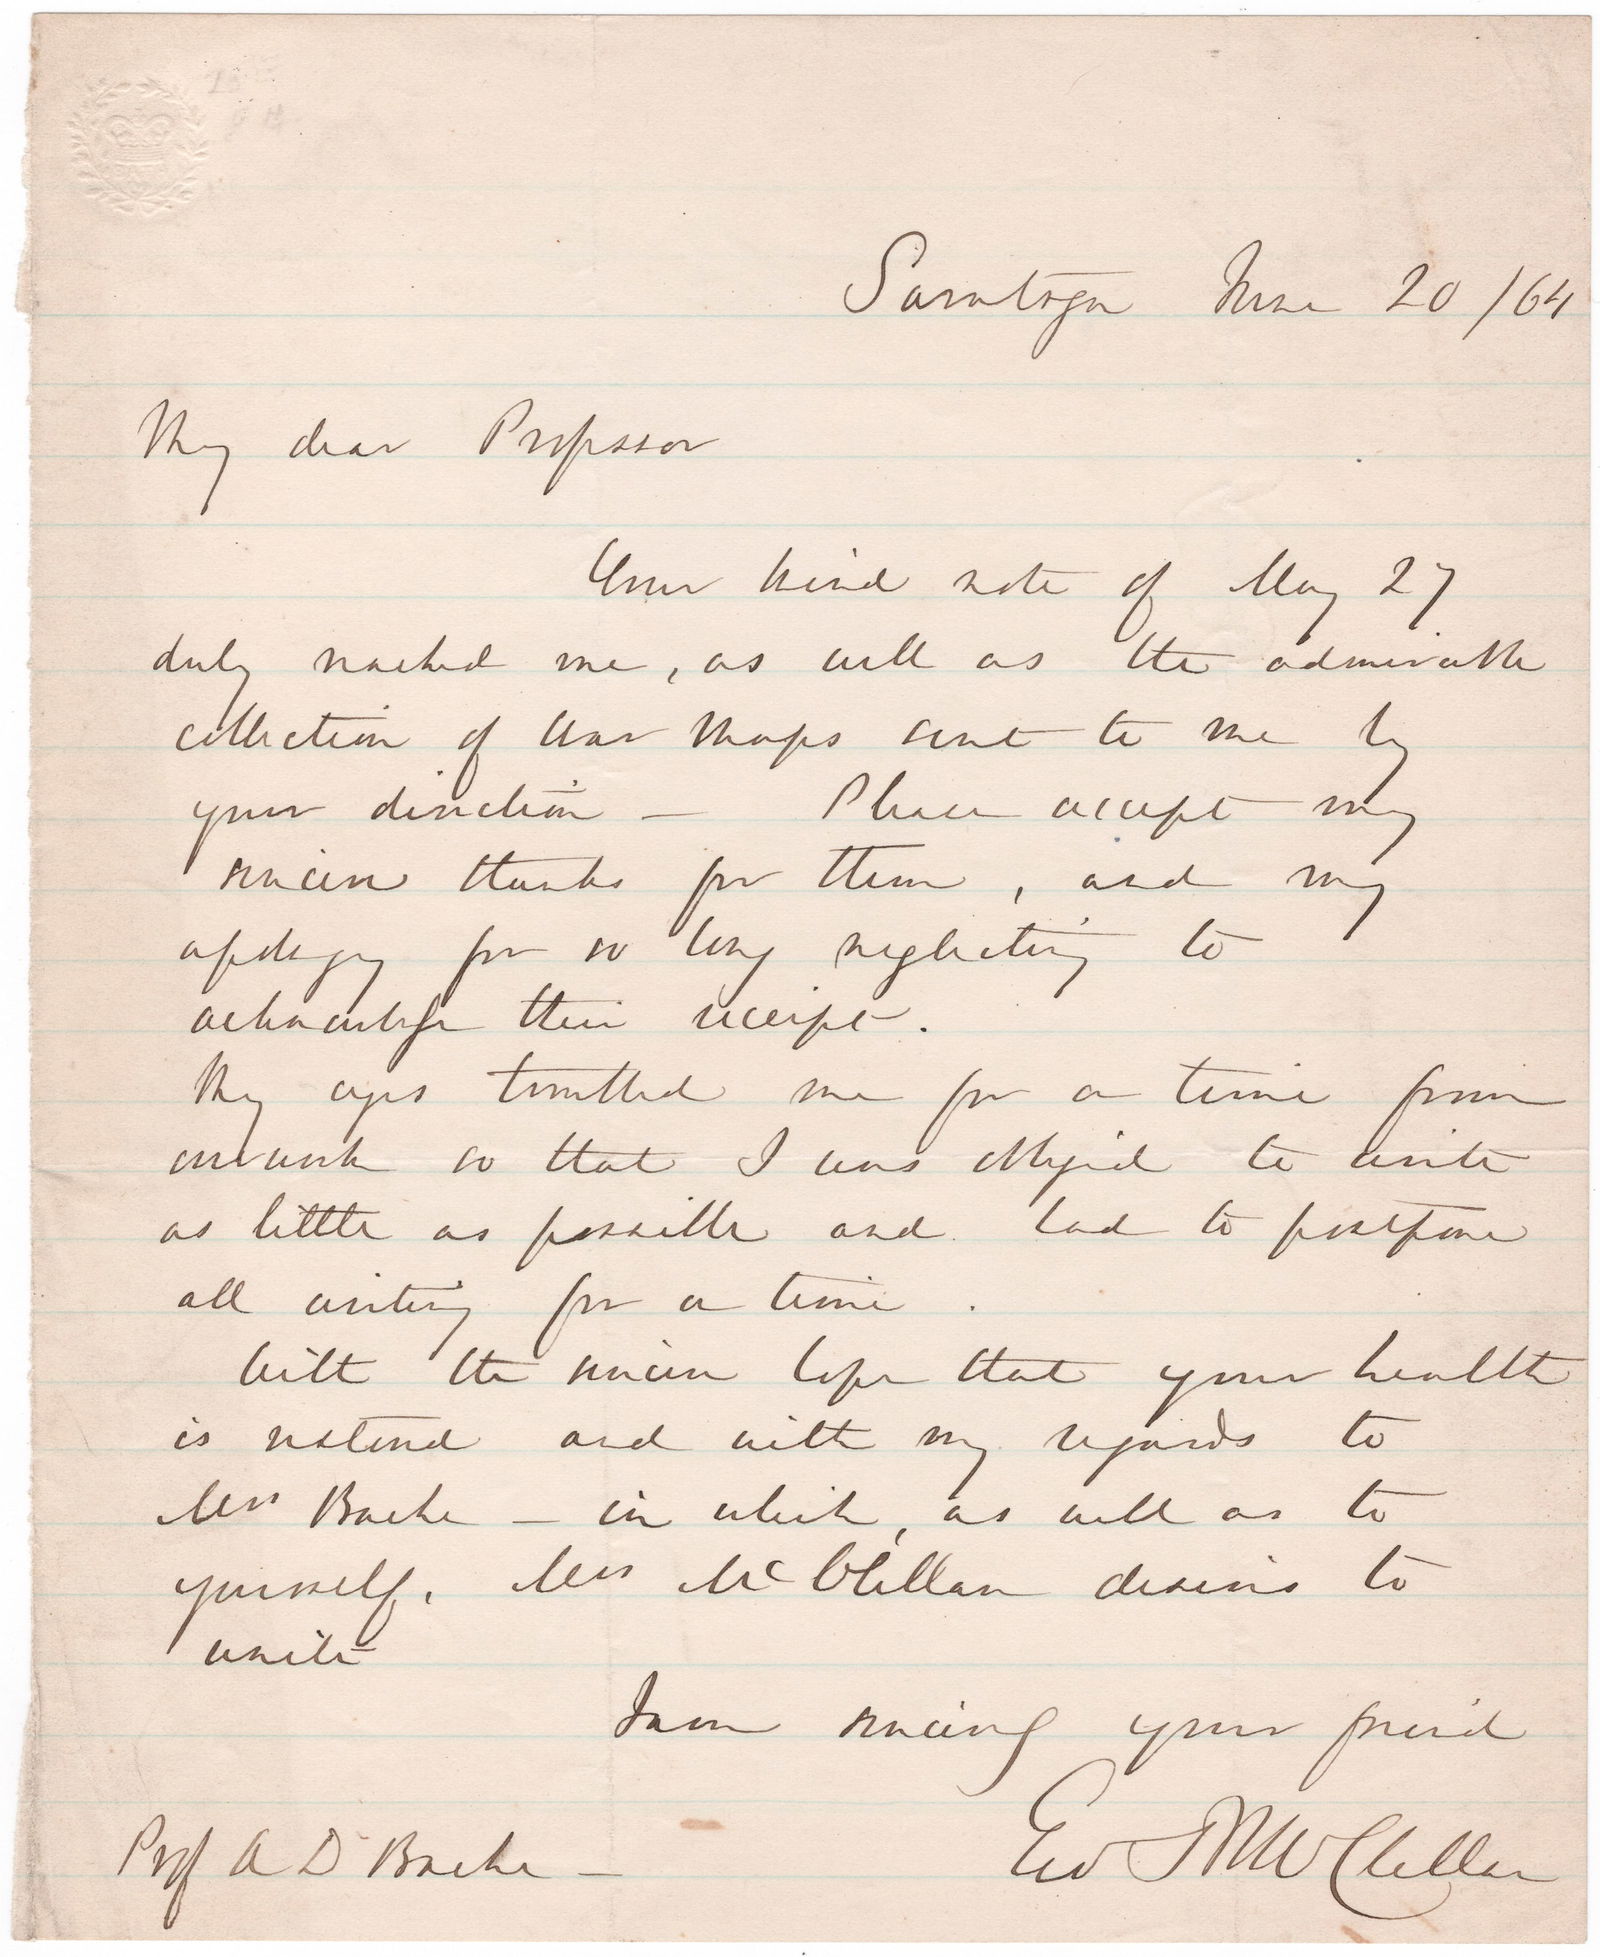 Saratoga June 20/64
My dear Professor
Your kind note of May 27
duly reached me, as well as the admirable
collection of War Maps sent to me by
your direction — Please accept my
sincere thanks for them, and my
apology for so long neglecting to
acknowledge their receipt.
My eyes troubled me for a time from
overwork so that I was obliged to write
as little as possible and had to postpone
all writing for a time.
With the sincere hope that your health
is restored and with my regards to
Mrs Bache — in which, as well as to
yourself, Mrs McClellan desires to
unite
I am sincerely your friend
Geo B McClellan
Prof A D Bache —